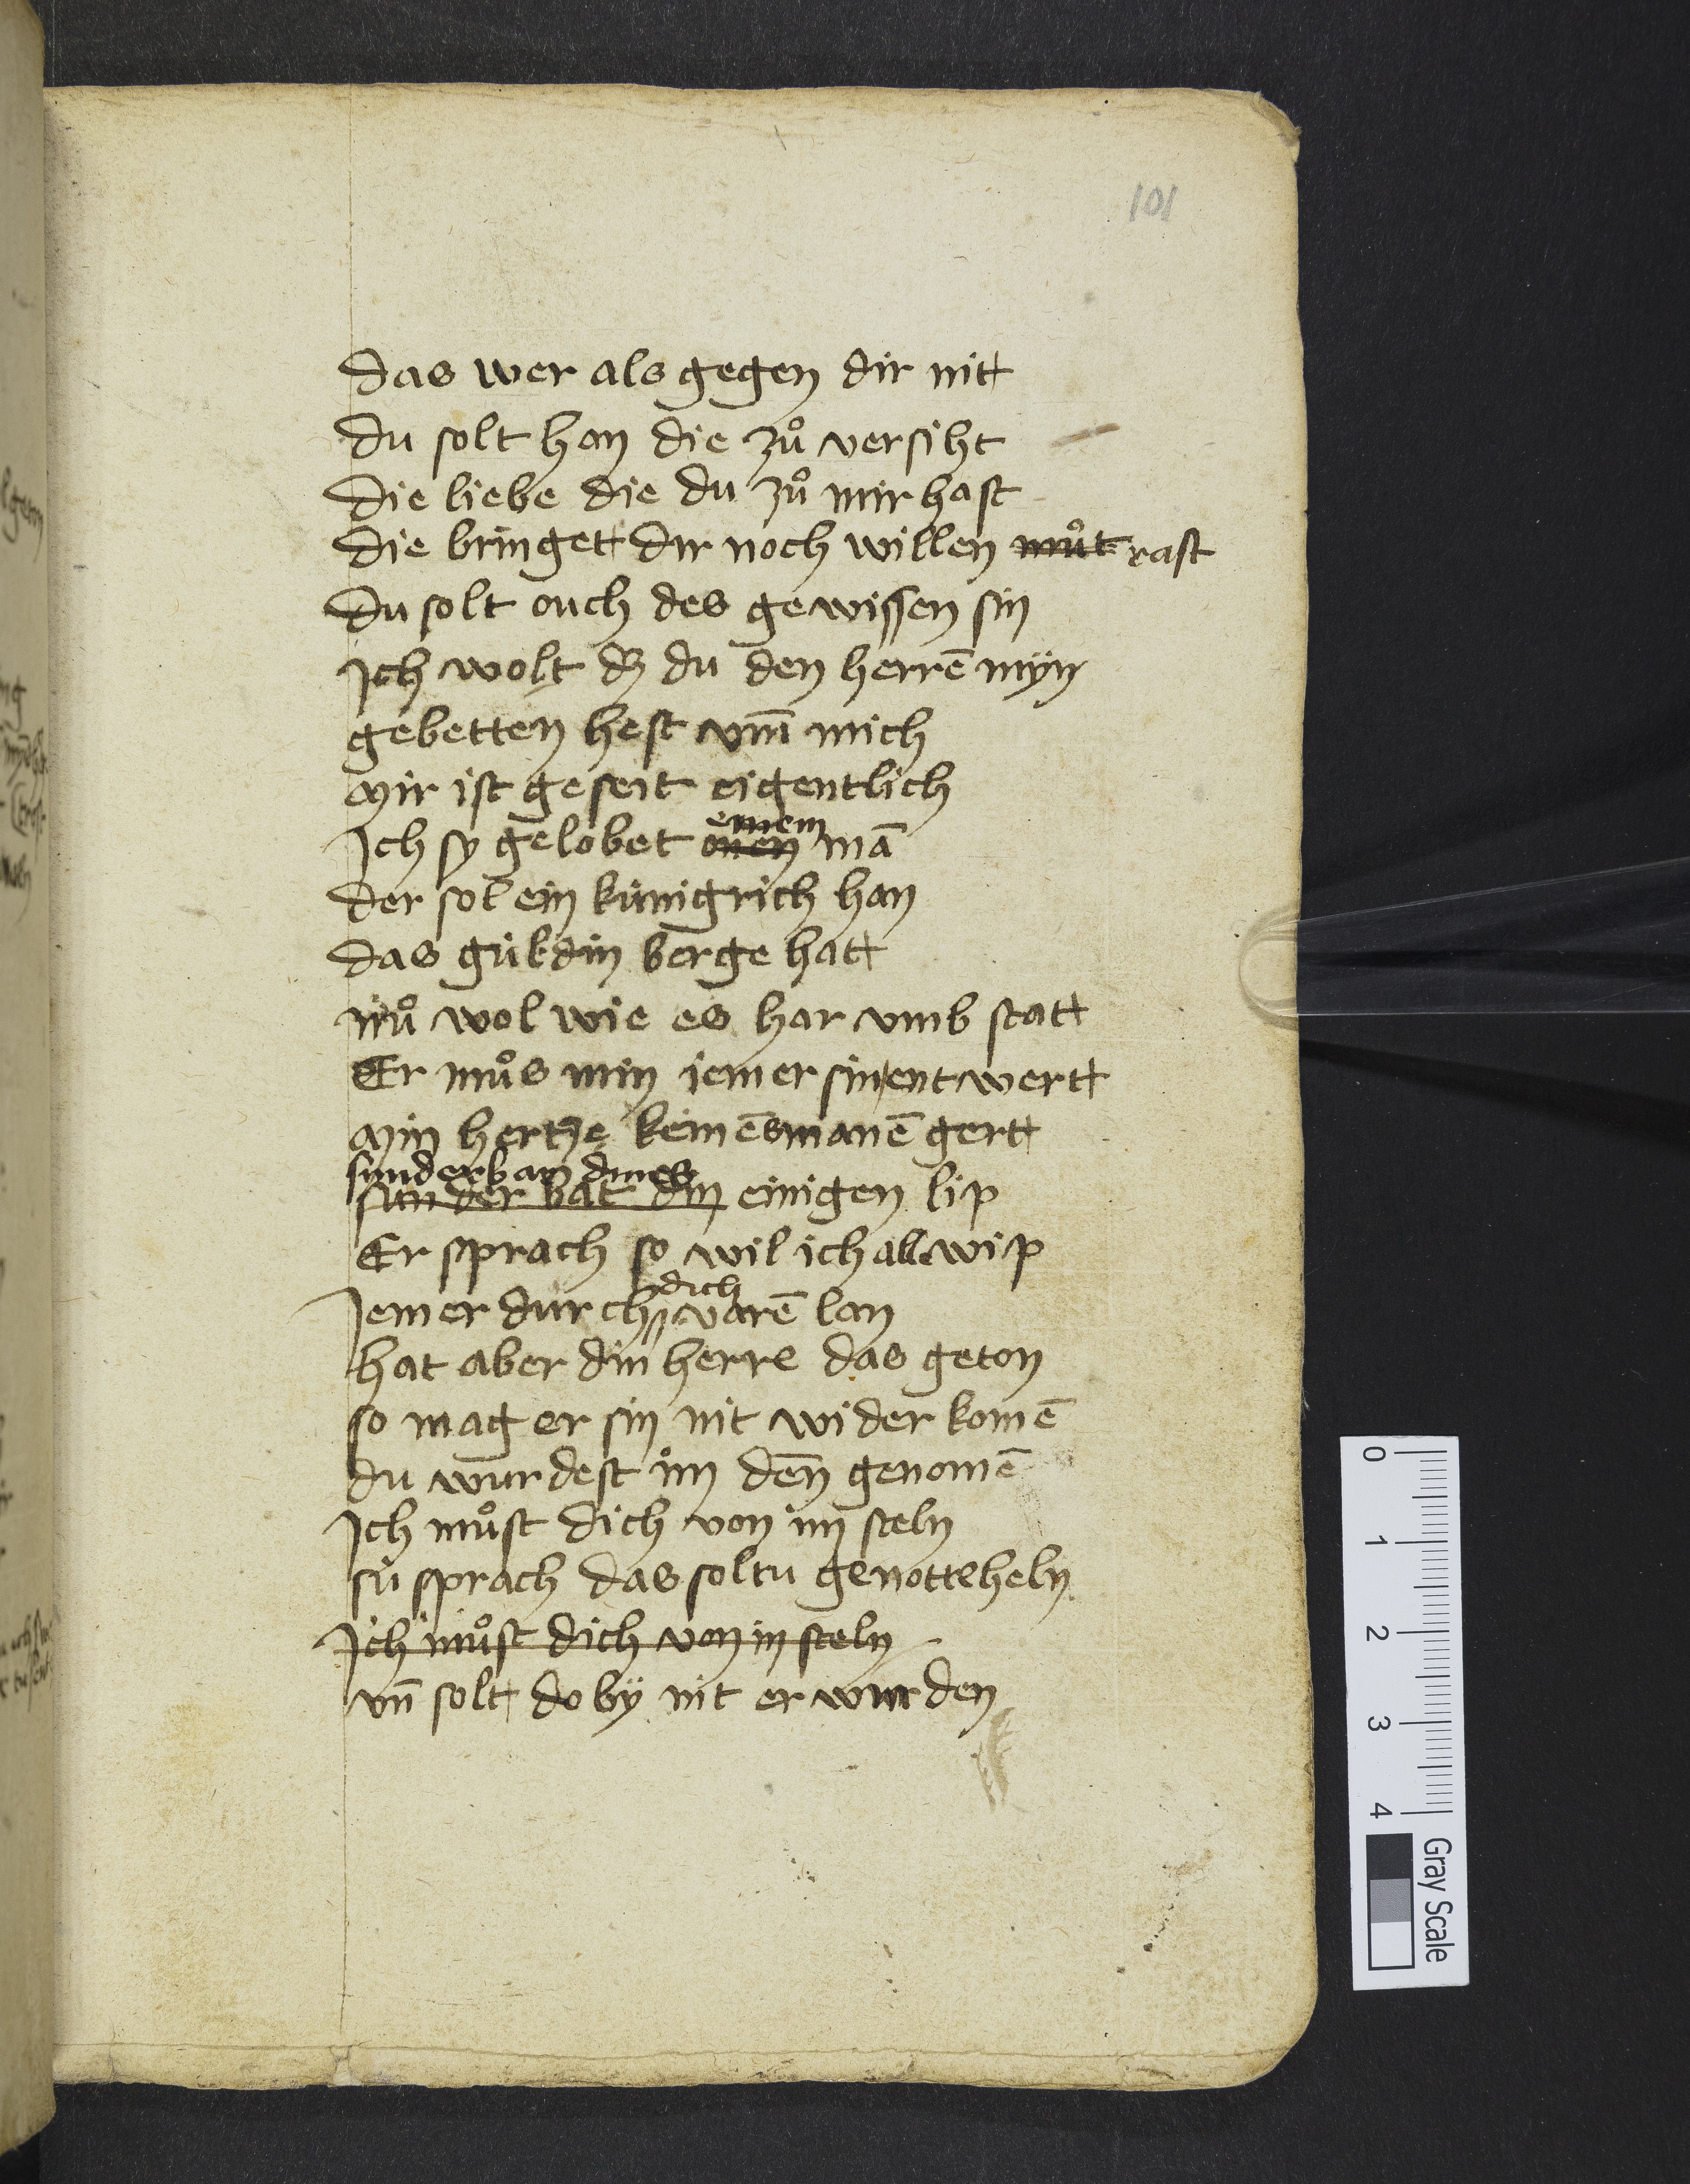 101
das wer als gegen dir nitt
du solt han die zuͦ versiht
die liebe die du zuͦ mir hast
die bringet dir noch willen muͦt rast
du solt ouch des gewissen sin
Jch wolt dz du den herrē myͤn
gebetten hest vm̄ mich
mir ist geseit eigentlich
einem
Jch sy gelobet man
der sol ein künigrich han
das güldin berge hatt
nuͦ wol wie es har vmb statt
Er muͦs min iemer sin entwertt
min hertze keinēs manē gertt
sunderbar dines
sunder bat din einigen lip
Er sprach so wil ich alle wip
dich
Jemer durch varē lan
hat aber din herre das geton
so mag er sin nit wider komē
du wurdest im deñ genomē
Jch muͦst dich von im steln
su sprach das soltu genotte heln
Jch muͦst dich von in steln
vn̄ solt do by nit erwinden
0 1 2 3 4
Gray Scale